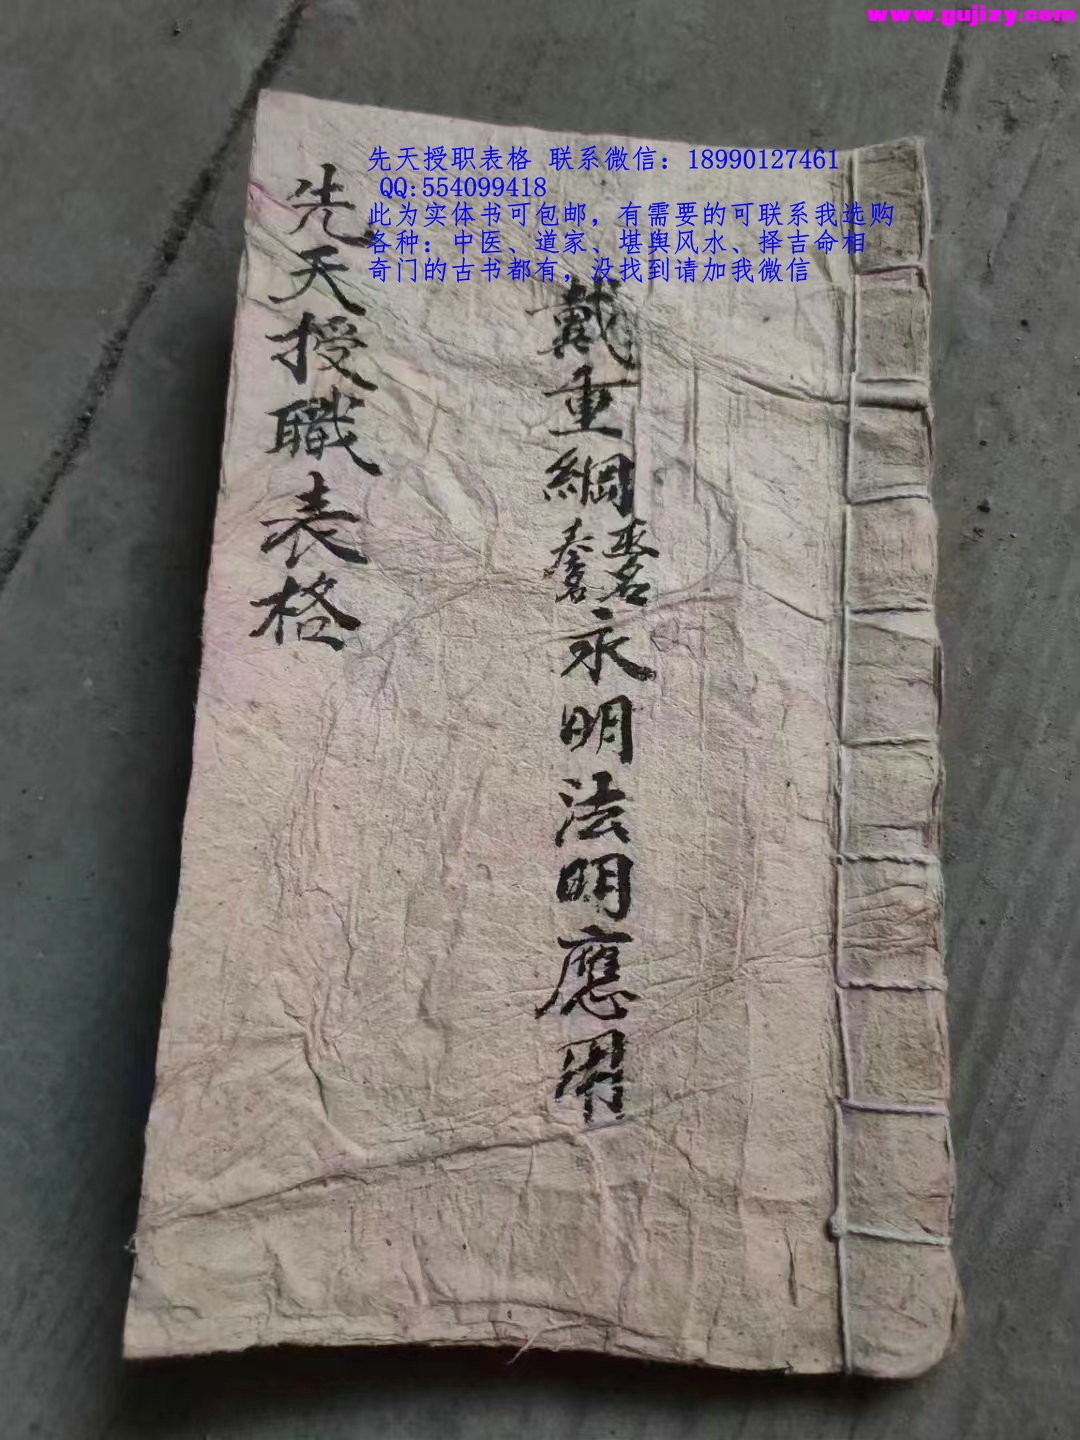 www.gujizy.com
先天授职表格 联系微信：18990127461
QQ:554099418
此为实体书可包邮，有需要的可联系我选购
各种：中医、道家、堪舆风水、择吉命相
奇门的古书都有，没找到请加我微信
先天授職表格
戴重綱
永明法明應用